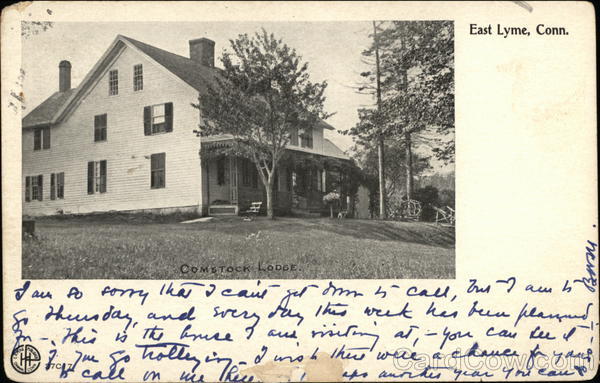 East Lyme, Conn.
COMSTOCK LODGE.
I am so sorry that I can't get down to call, but I am to
go Thursday, and every day this week has been planned
for - This is the house I am visiting at, - you can see it
if you go trolleying - I wish there were a chance for you
to call on me there
perhaps another year you can
CardCow.com